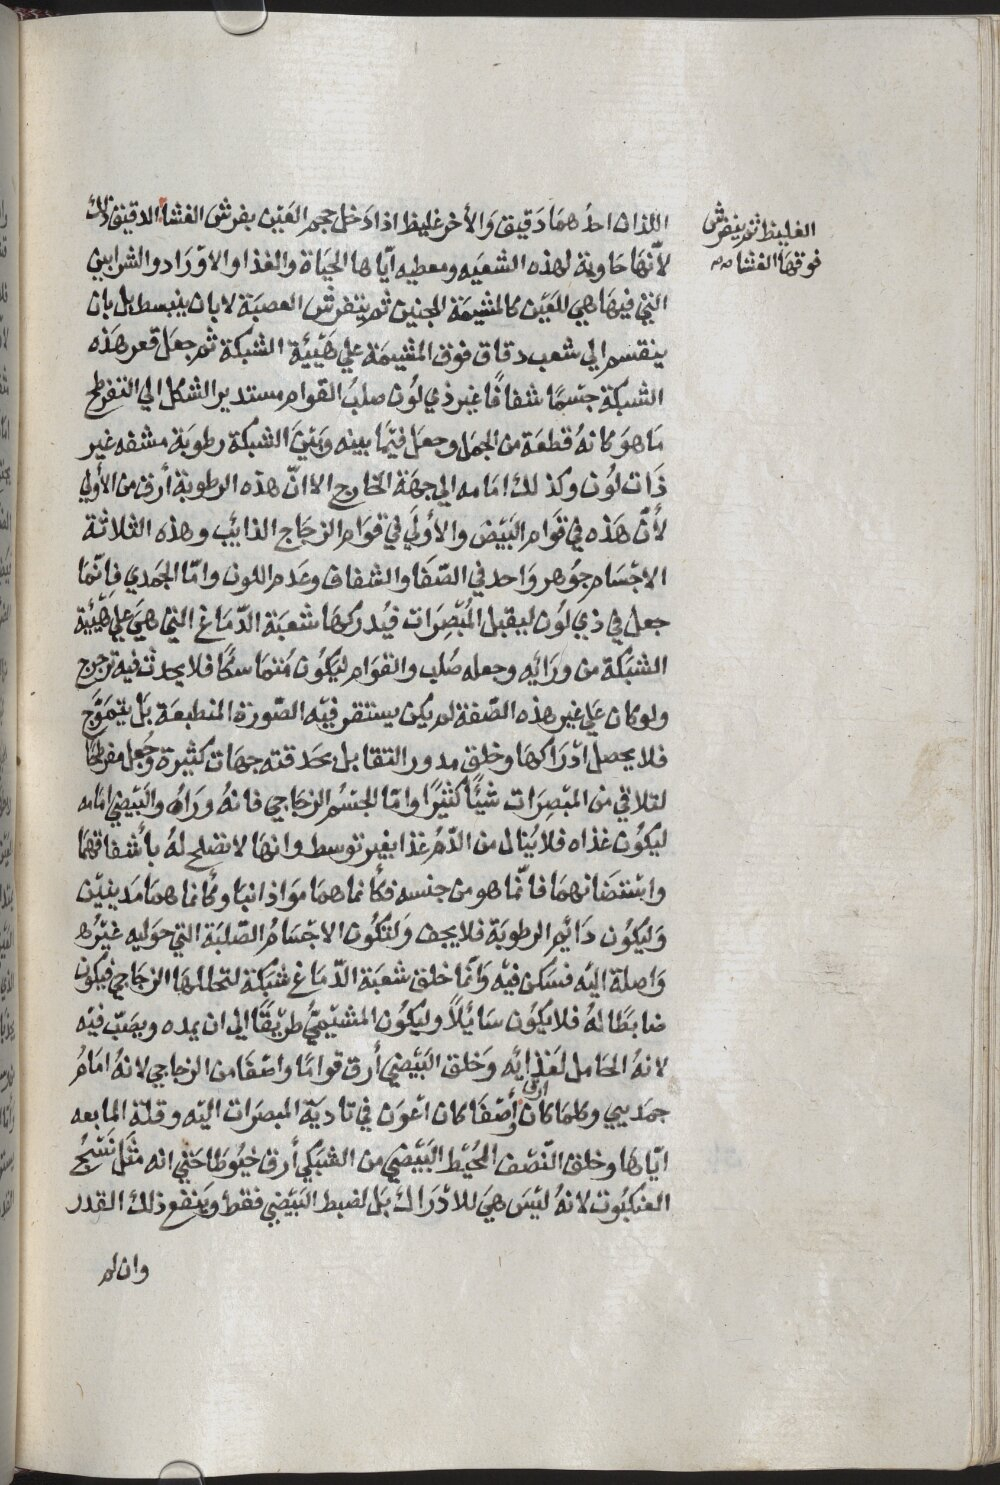 اللذان احدُهمَا دَقيق وَالأخر غليظ اذا دَخل حجم العَيْن يفرش الغشا الدقيق تلك
الغليظ ثم ينفرش
فوقهَا الغشا صه
لأنّهَا حَاوية لهذه الشعبَه ومعطيه اياها الحيَاة والغذا والاوْرَاد والشرايين
التي فيهَا هي للعَيْن كالمشيمَة للجنين ثم يتفرش العصبَة لا بان ينبسط بل بان
ينقسم الي شعب دقاق فوق المشيمَة علي هَيْئة الشبكة ثم جعَل قعر هَذه
الشبكة جسْمًا شفافًا غير ذي لوُن صلبُ القوام مستدير الشكل الي التفرطح
مَا هوَ كانهُ قطعَة من الجمَد وجعَل فيْمَا بينه وبَيْنَ الشبكة رطوبَة مشفه غير
ذَات لوُن وكذلك امَامه الي جهَة الخارج الا انّ هذه الرطوبة أرق من الأولي
لأنّ هَذه في قوَام البَيْض والأولَي في قوَام الزجَاج الذايْب وهذه الثلاثة
الاجْسَام جوْهر وَاحد في الصّفَا والشفاف وعَدم اللون وامّا الجمَدي فانّمَا
جعل في ذي لوُن ليقبل المُبْصِرَات فيُدركهَا شعبَة الدّمَاغ التي هيَ علي هَيْئة
الشبَكة من ورَايْه وجعله صُلب والقوَام ليَكوُن مُتماسكًا فلا يحدث فيه ترجرج
ولو كان عَلي غير هذه الصّفة لم يكن يستقر فيْه الصّورة المنطبعَة بَل يتموَّج
فلا يحصل ادْرَاكهَا وخلق مدور التقابل بحَدقته جهَات كثيرة وجُعل مفرطحًا
لتلاقي من المبْصِرَات شيْأً كثيْرًا وامّا الجسْمُ الزجَاجي فانهُ ورَاهُ والبَيْضي امَامه
ليَكوُن غذاه فلا يُنال من الدّم غذا بغير توسط وانهَا لا تصْلح لهُ باشفافهمَا
واستضانهمَا فانّما هو من جنسه فكأنما همَا
وَليكوُن دَايْم الرطوبَة فلا يجف وَلتكُون الاجْسَامُ الصّلبَة التي حَوليه غيْر
وَاصلة اليْه فسَكن فيْه وَانّمَا خلق شعبَة الدّمَاغ شبَكة لتخللهَا الزجَاجي فيكون
ضابطًا لهُ فلا يكوُن سَايْلاً وليكوُن المشيْميُّ طريْقًا الي ان يمده ويصَبّ فيْه
لانهُ الحَامل لغَذايْه وَخلق البَيْضي أرق قوامًا واصْفَا من الزجاجي لانهُ امَامُ
جمَديي وكلمَا كان ارق وأصْفَا كان اعْوَن في تاديَة المبصرَات اليْه وقلة المانعه
ايّاهَا وخلق النّصْف المُحيْط البَيْضي من الشبَكي أرق خيُوطًا حَتي انه مثَل نَسْجُ
العنكبُوت لانهُ ليْسَ هيَ للادْرَاك بَل لضبط البَيْضي فقط وَينفع ذلك القدر
وان لم